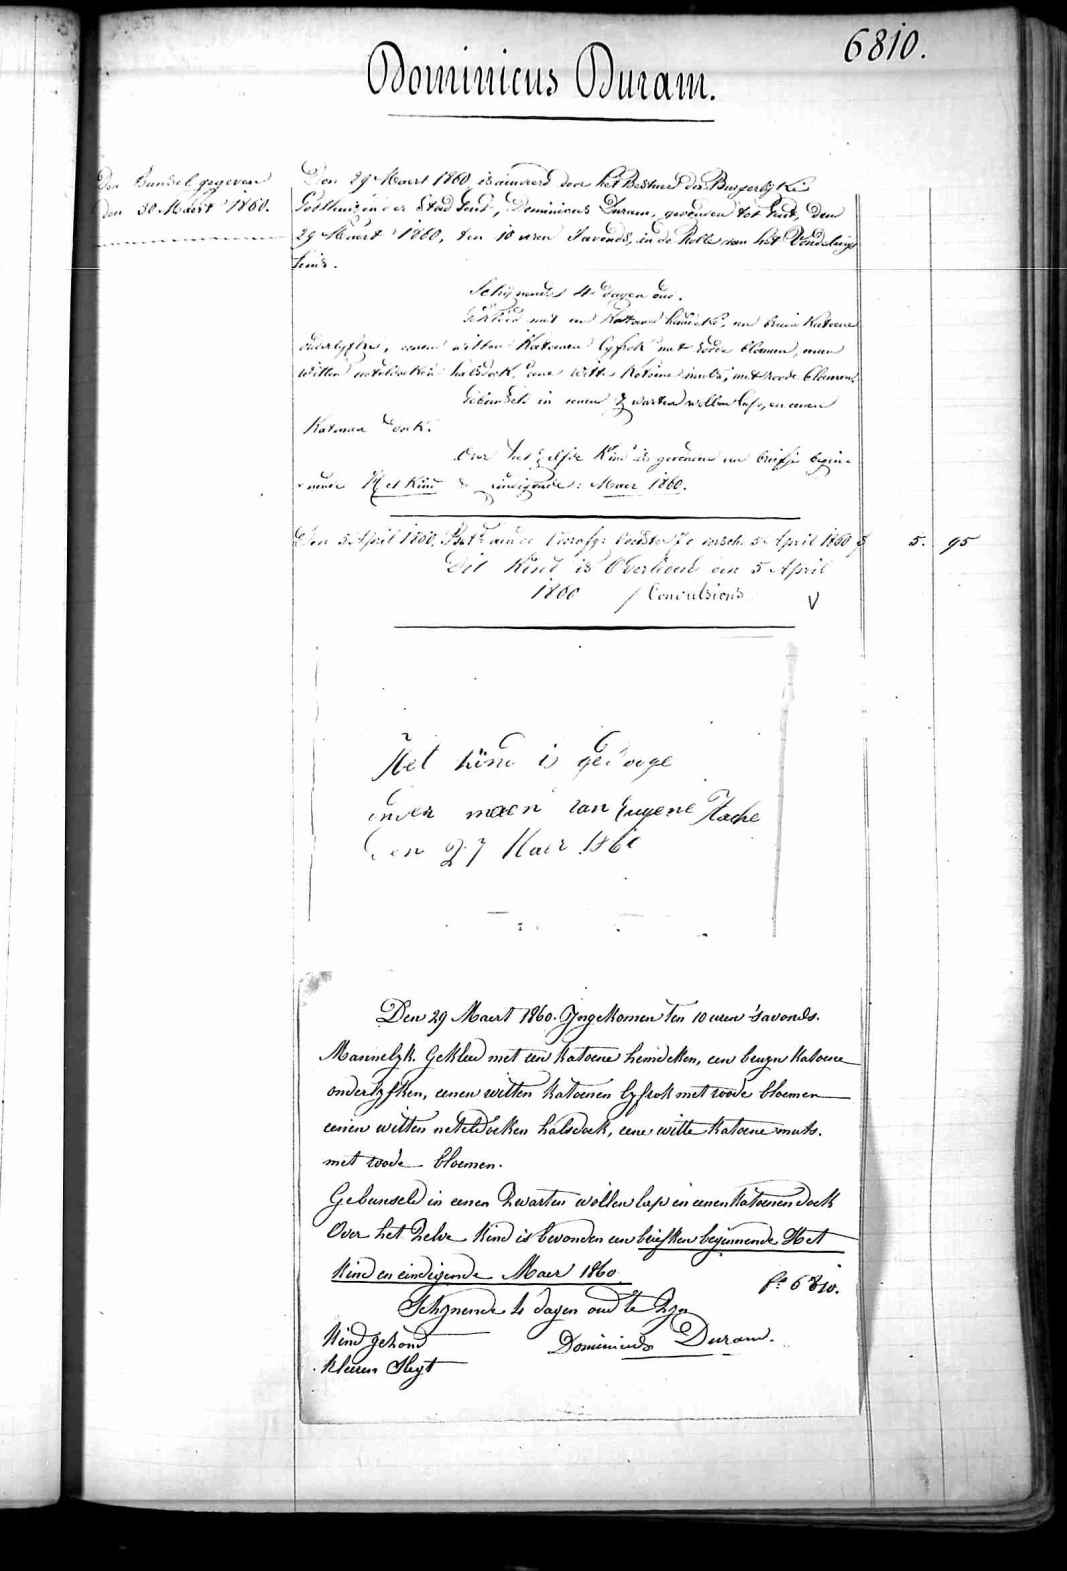 6810.
Dominicus Duram.
Den bundel gegeven
den 30 Maert 1860.
Den 29 Maert 1860 is aenveerd door het Bestuur der Burgerlyke
Godshuizen der Stad Gent, Dominicus Duram, gevonden tot Gent, den
29 Maert 1860, ten 10 uren s'avonds, in de Rolle van het Vondelings
huis.
Schynende 4 dagen oud.
Gekleed met een Katoene hemdeke, een bruin Katoene
onderlyfke, eenen witten Katoenen lyfrok met roode bloemen, eenen
witten neteldoeken halsdoek, eene witte Katoene muts, met roode bloemen.
Gebunseld in eenen zwarten wollen lap, en eenen
Katoenen doek.
Over het zelfde Kind is gevonden een briefje begin-
nende Het Kind & eindigende: Maer 1860.
Den 5 April 1860, 5 April 1860 5. 95
Dit Kind is Overleden den 5 April
1860 / Convulsions V
Het kind is gedooge
enden naem van Eugene Hache
den 27 Maer 1860
Den 29 Maert 1860. Yngekomen ten 10 uren 's avonds.
Mannelyk. Gekleed met een katoene hemdeken, een bruyn katoene
onderlyfken, eenen witten katoenen lyfrok met roode bloemen
eenen witten neteldoeken halsdoek, eene witte katoene muts.
met roode bloemen.
Gebunseld in eenen Zwarten wollen lap en eenen katoenen doek
Over het Zelve kind is bevonden een briefken beginnende Het
kind en eindigende Maer 1860
f° 6810.
Schynende 4 dagen oud te Zyn
kind gezond Dominicus Duram.
kleeren Slegt